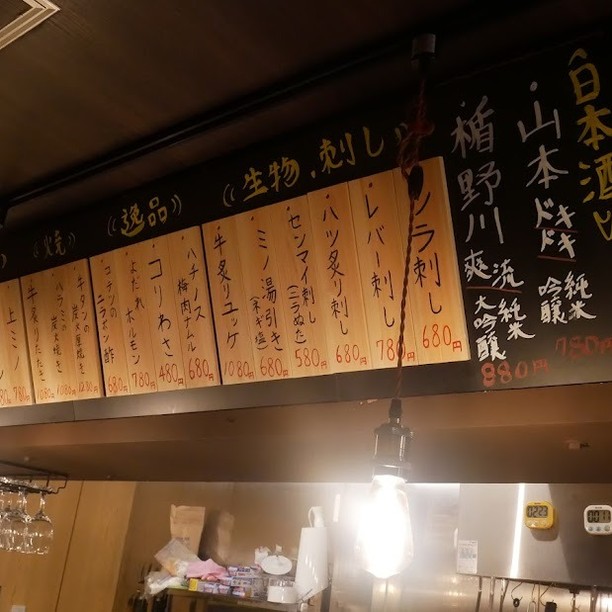 日本酒
山本 ドキドキ 純米吟醸 780円
楯野川 爽流 純米大吟醸 880円
生物・刺し
ソラ刺し 680円
レバー刺し 780円
ハツ炙り刺し 680円
センマイ刺し(ニラぬた) 580円
ミノ湯引き(ネギ塩) 680円
牛炙りユッケ 1080円
逸品
ハチノス梅肉ナムル 680円
コリわさ 480円
よだれホルモン 780円
コテッのニラポン酢 680円
牛タンの炭火焼き 1080円
ハラミの炭火焼き 1080円
牛炙りたたき 1080円
上ミノ 780円